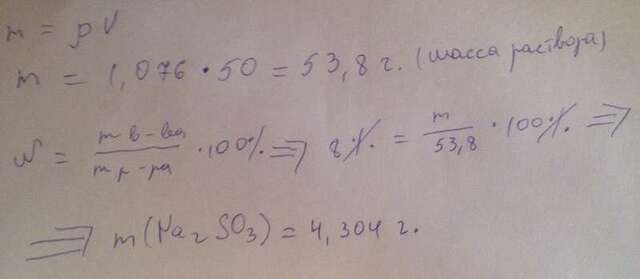 m = ρV
m = 1,076 • 50 = 53,8 г. (масса раствора)
W = m в-ва / m р-ра • 100% ⇒ 8% = m / 53,8 • 100% ⇒
⇒ m(Na₂SO₃) = 4,304 г.